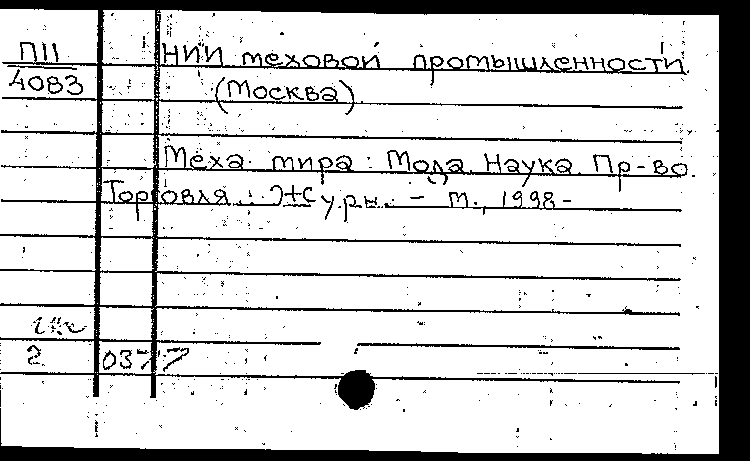 П11 НИИ меховой промышленности
4083 (Москва)
Меха мира : Мода. Наука. Пр-во.
Торговля : Журн. – М., 1998-
2 0377